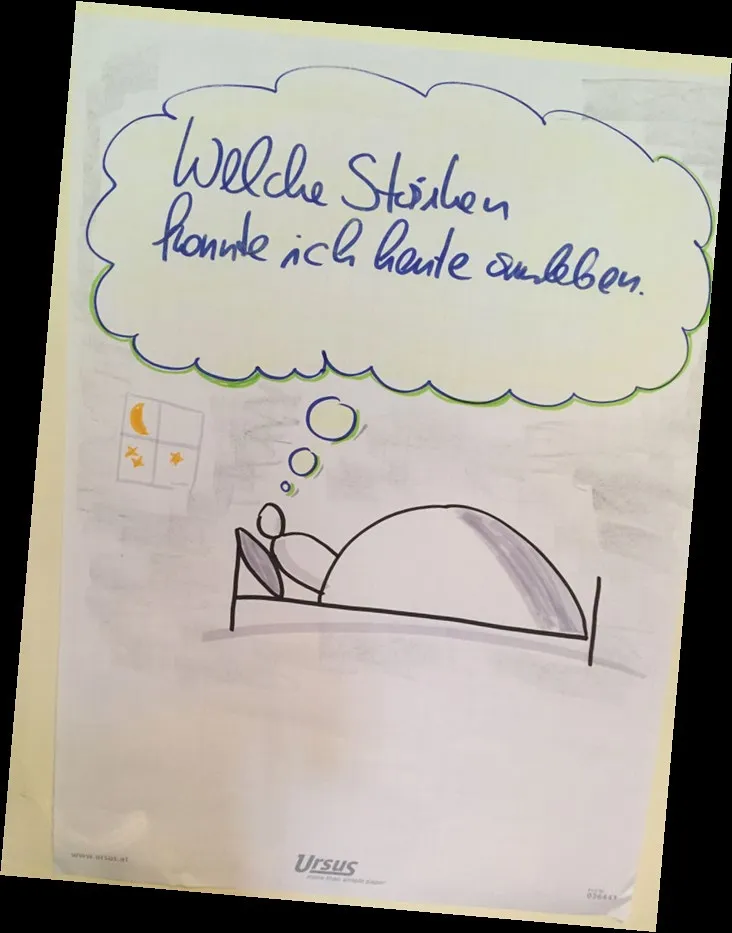 Welche Stärken
konnte ich heute ausleben.
www.ursus.at
Ursus
more than simple paper